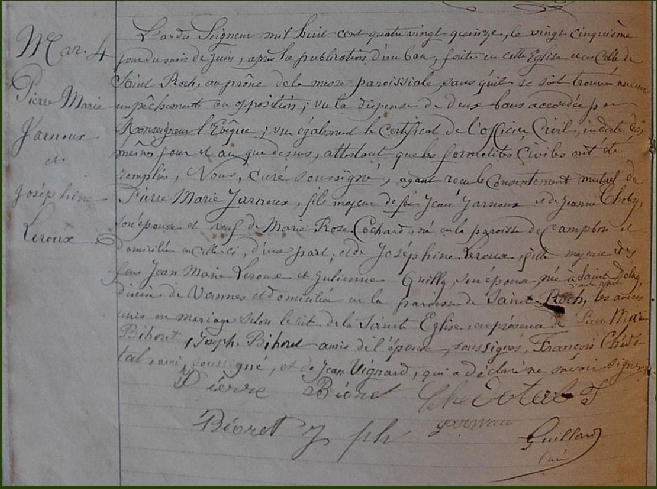 Mar. 4
Pierre Marie
Jarnoux
et
Joséphine
Leroux
L'an du Seigneur mil huit cent quatre vingt quinze, le vingt cinquième
jour du mois de juin, après la publication d'un ban, faite en cette Eglise et en celle de
Saint Roch, au prône de la messe paroissiale sans qu'il se soit trouvé aucun
empêchement ou opposition; vu la dispense de deux bans accordée par
Monseigneur l'Evêque; vu également le certificat de l'officier Civil, en date des
mêmes jour et an que dessus, attestant que les formalités Civiles ont été
remplies, Nous, curé soussigné, ayant reçu le Consentement mutuel de
Pierre Marie Jarnoux, fils majeur de feu Jean Jarnoux et de Jeanne
son épouse et veuf de Marie Rose Cochard, né en la paroisse de Campbon et
domicilié en celle-ci, d'une part, et de Joséphine Leroux, fille majeure des
feus Jean Marie Leroux et Julienne Guilly, son épouse, née à Saint
diocèse de Vannes et domiciliée en la paroisse de Saint Roch, les avons
unis en mariage selon le rit de la Sainte Eglise, en présence de Pierre Marie
Bihoret, Joseph Bihoret amis de l'époux soussignés, François
tal, ami, soussigné, et de Jean Vignard, qui a déclaré ne savoir signer
Pierre Bioret
Bioret J ph
Guillard
curé